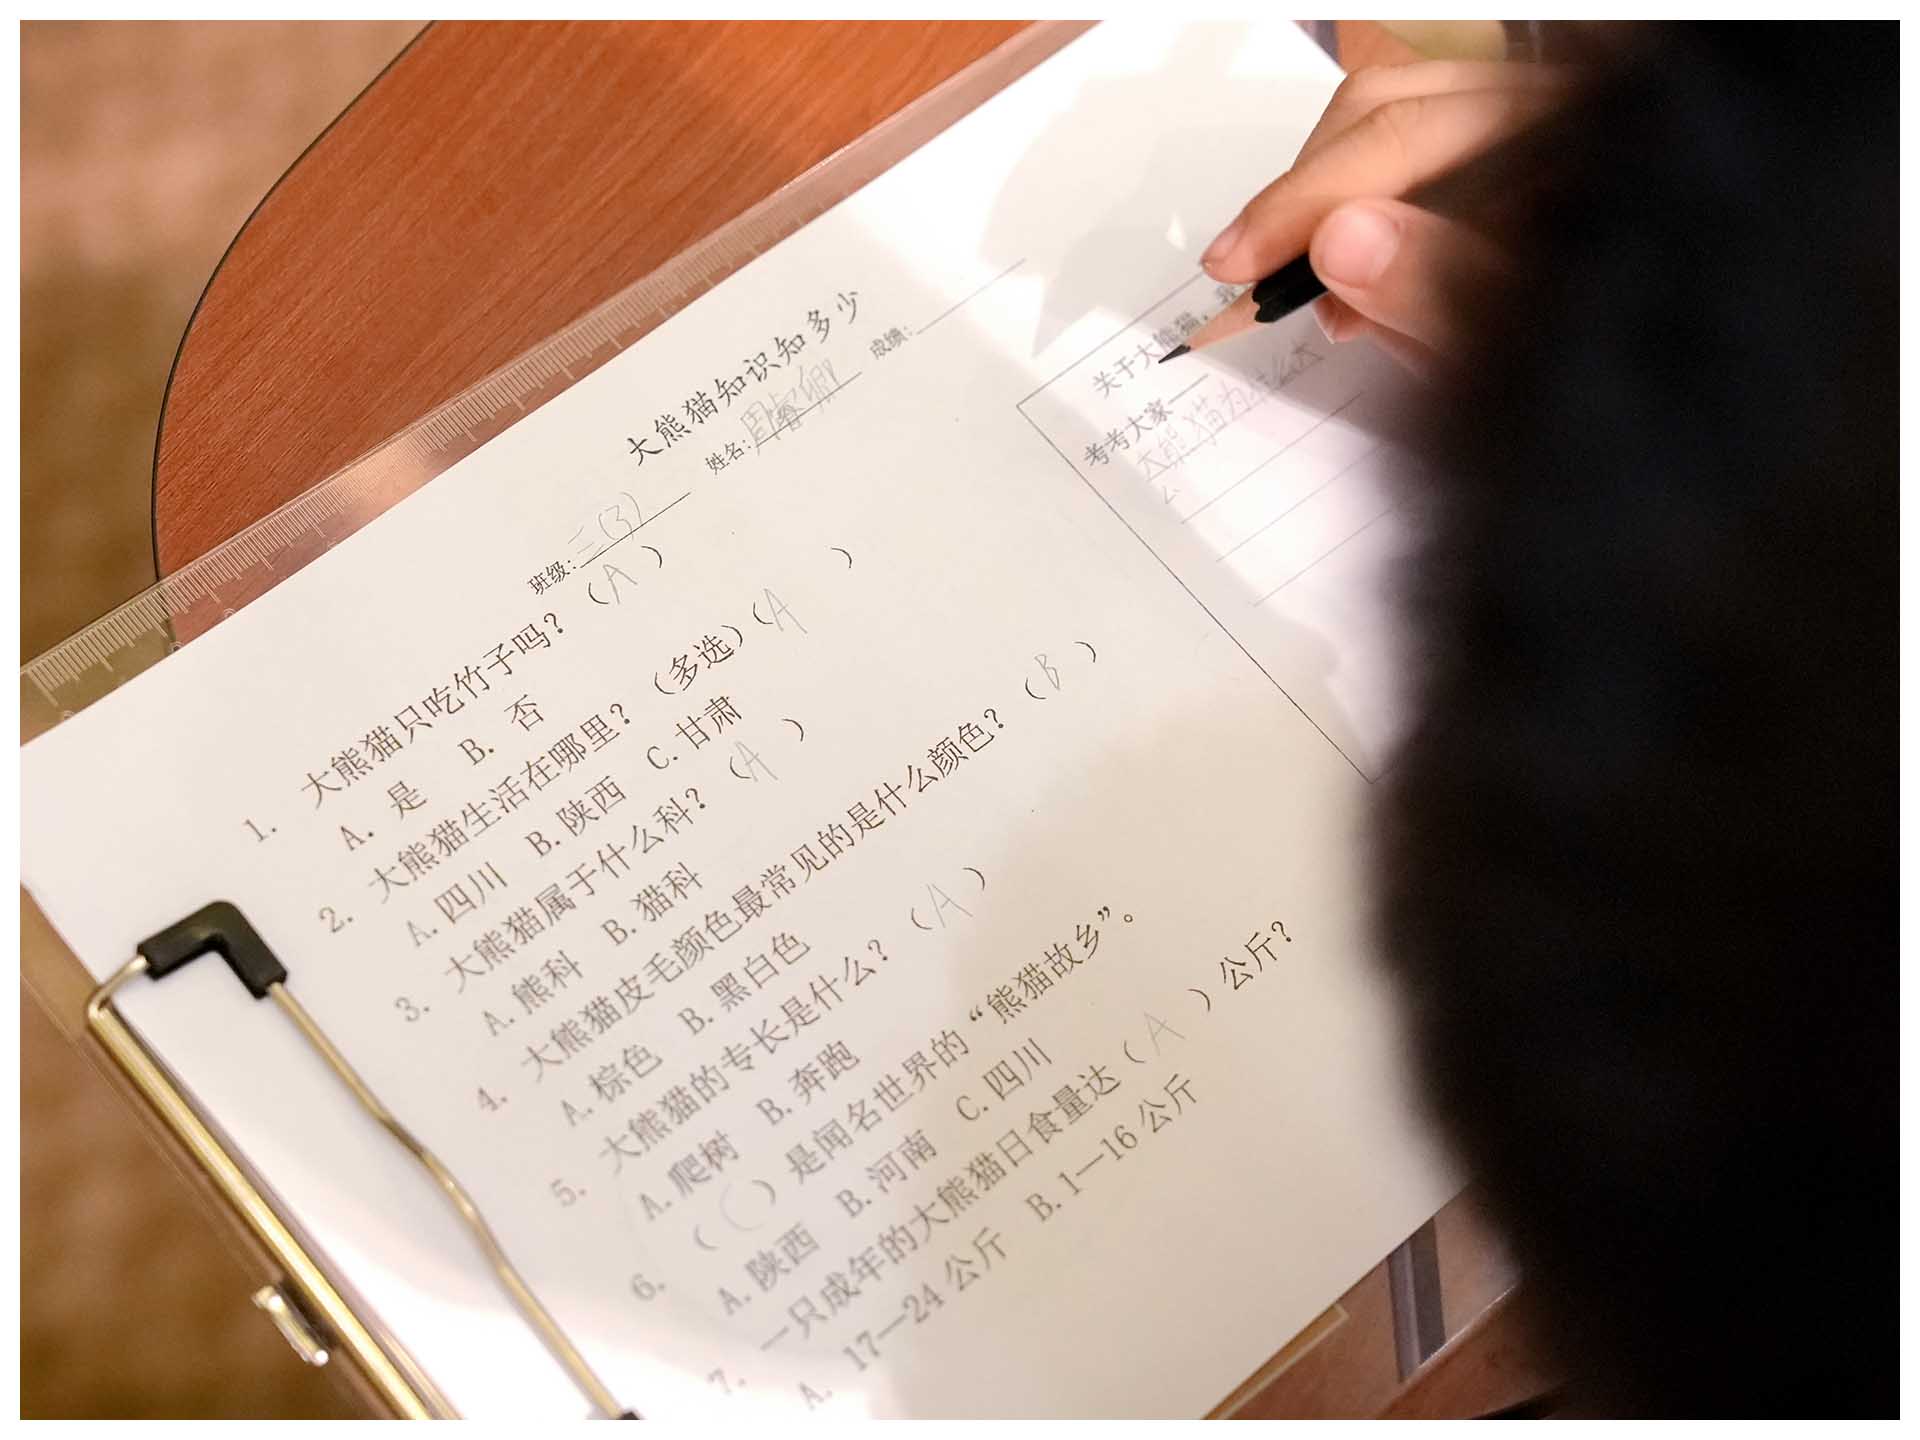 大熊猫知识知多少
班级：三(3) 姓名：周睿 成绩：
1. 大熊猫只吃竹子吗？（A）
A. 是 B. 否
2. 大熊猫生活在哪里？（多选）（A ）
A. 四川 B. 陕西 C. 甘肃
3. 大熊猫属于什么科？（A ）
A. 熊科 B. 猫科
4. 大熊猫皮毛颜色最常见的是什么颜色？（B ）
A. 棕色 B. 黑白色
5. 大熊猫的专长是什么？（A ）
A. 爬树 B. 奔跑
6. （C）是闻名世界的“熊猫故乡”。
A. 陕西 B. 河南 C. 四川
7. 一只成年的大熊猫日食量达（A ）公斤？
A. 17—24 公斤 B. 1—16 公斤
关于大熊猫，我
考考大家——
大熊猫为什么
么